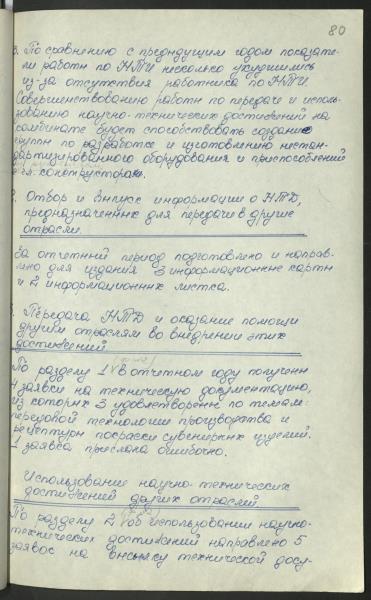 80
3. По сравнению с предыдущим годом показате-
ли работы по НТИ несколько ухудшились
из-за отсутствия работника по НТИ.
Совершенствованию работы по передаче и исполь-
зованию научно-технических достижений на
комбинате будет способствовать создание
группы по разработке и изготовлению нестан-
дартизированного оборудования и приспособлений
конструкторам.
2. Отбор и выпуск информации о НТД,
предназначенных для передачи в другие
отрасли.
За отчетный период подготовлено и направ-
лено для издания 3 информационные карты
и 2 информационных листка.
3. Передача НТД и оказание помощи
другим отраслям во внедрении этих
достижений
По разделу 1 в отчетном году получены
4 заявки на техническую документацию,
из которых 3 удовлетворены по темам:
передовой технологии производства и
рецептуры покраски сувенирных изделий.
1 заявка прислана ошибочно.
Использование научно-технических
достижений других отраслей.
По разделу 2 об использовании научно-
технических достижений направлено 5
заявок на высылку технической доку-